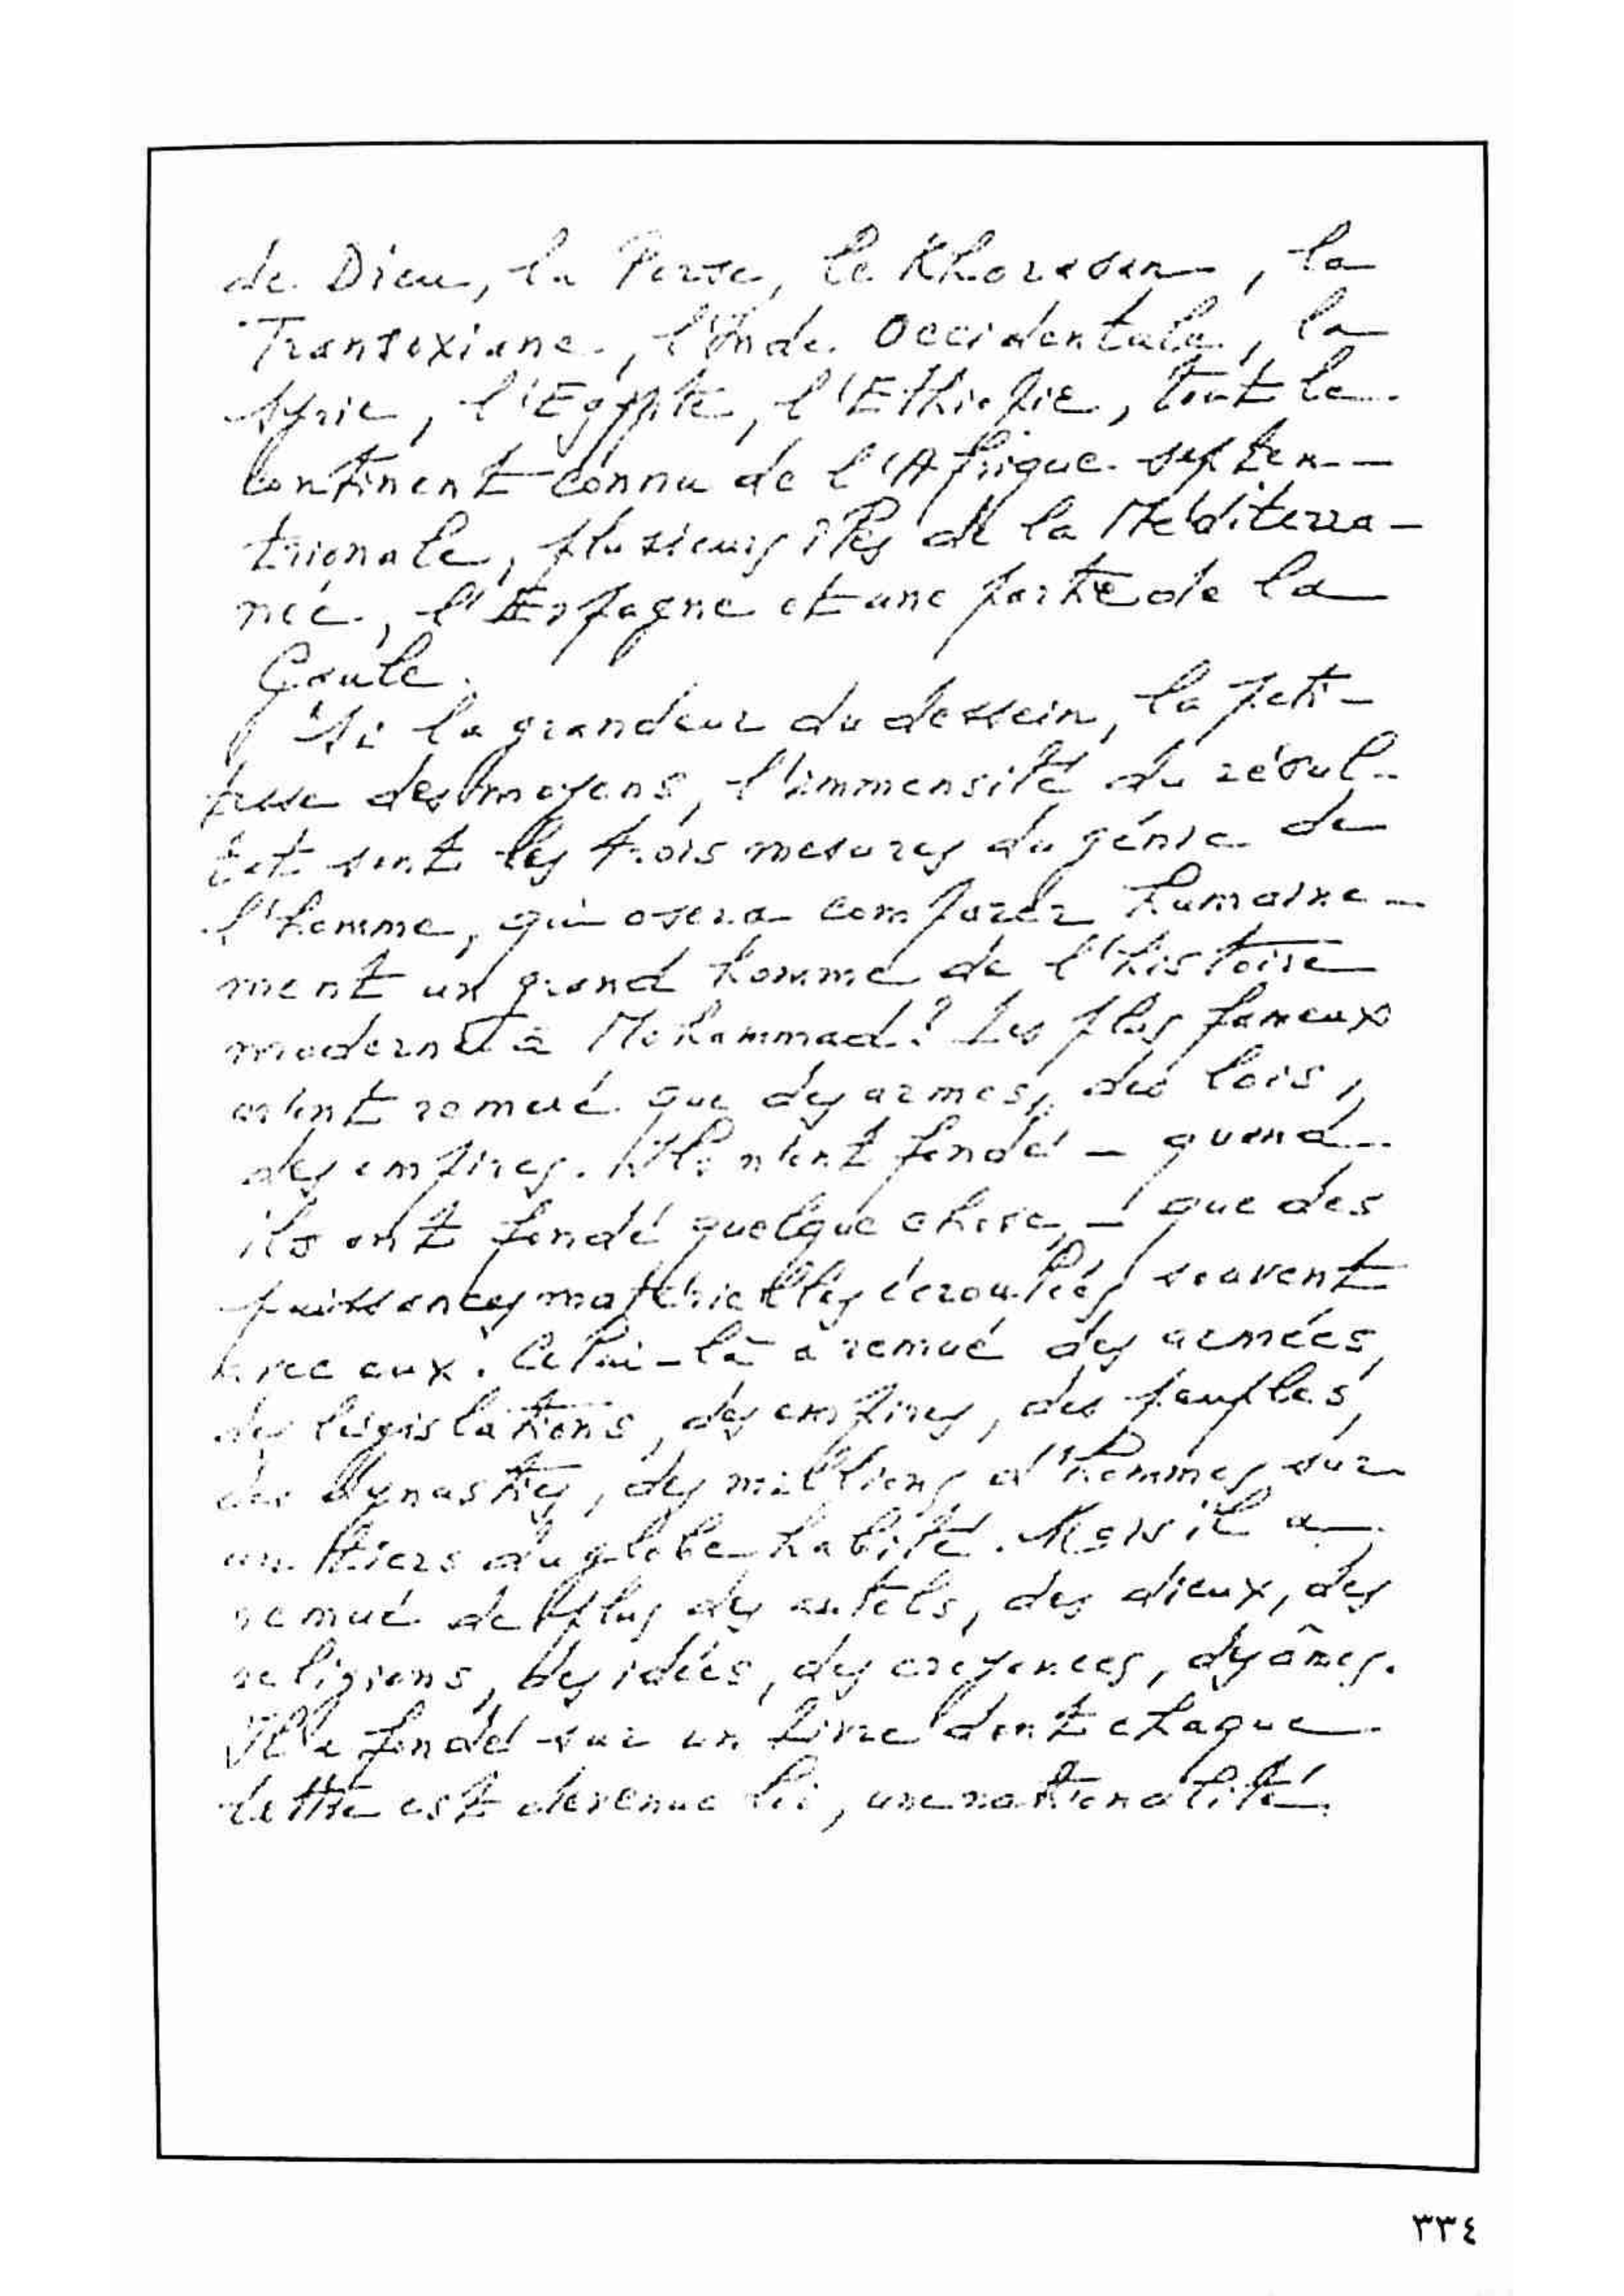 de Dieu, la Perse, le Khorasan, la
Transoxiane, l'Inde Occidentale, la
Syrie, l'Egypte, l'Ethiopie, tout le
continent connu de l'Afrique septen-
trionale, plusieurs îles de la Méditerra-
née, l'Espagne et une partie de la
Gaule.
"Si la grandeur du dessein, la peti-
tesse des moyens, l'immensité du résul-
tat sont les trois mesures du génie de
l'homme, qui osera comparer humaine-
ment un grand homme de l'histoire
moderne à Mohammad? Les plus fameux
n'ont remué que des armes, des lois,
des empires. Ils n'ont fondé - quand
ils ont fondé quelque chose, - que des
puissances matérielles écroulées souvent
avec eux. Celui-là a remué des armées,
des législations, des empires, des peuples,
des dynasties, des millions d'hommes sur
un tiers du globe habité. Mais il a
remué de plus des autels, des dieux, des
religions, des idées, des croyances, des âmes.
Il a fondé sur un livre dont chaque
lettre est devenue loi, une nationalité
٣٣٤